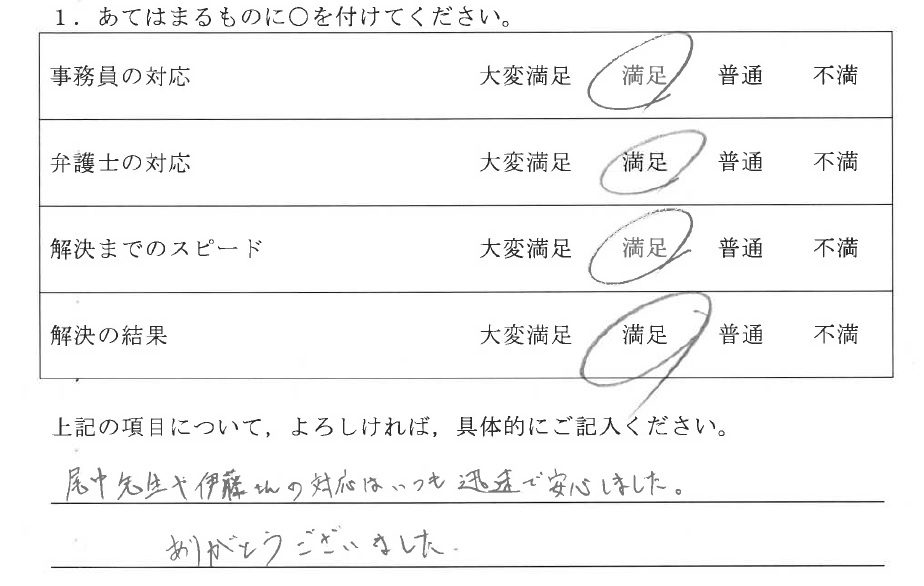 １．あてはまるものに○を付けてください。
事務員の対応 大変満足 満足 普通 不満
弁護士の対応 大変満足 満足 普通 不満
解決までのスピード 大変満足 満足 普通 不満
解決の結果 大変満足 満足 普通 不満
上記の項目について，よろしければ，具体的にご記入ください。
尾中先生や伊藤さんの対応はいつも迅速で安心しました。
ありがとうございました.